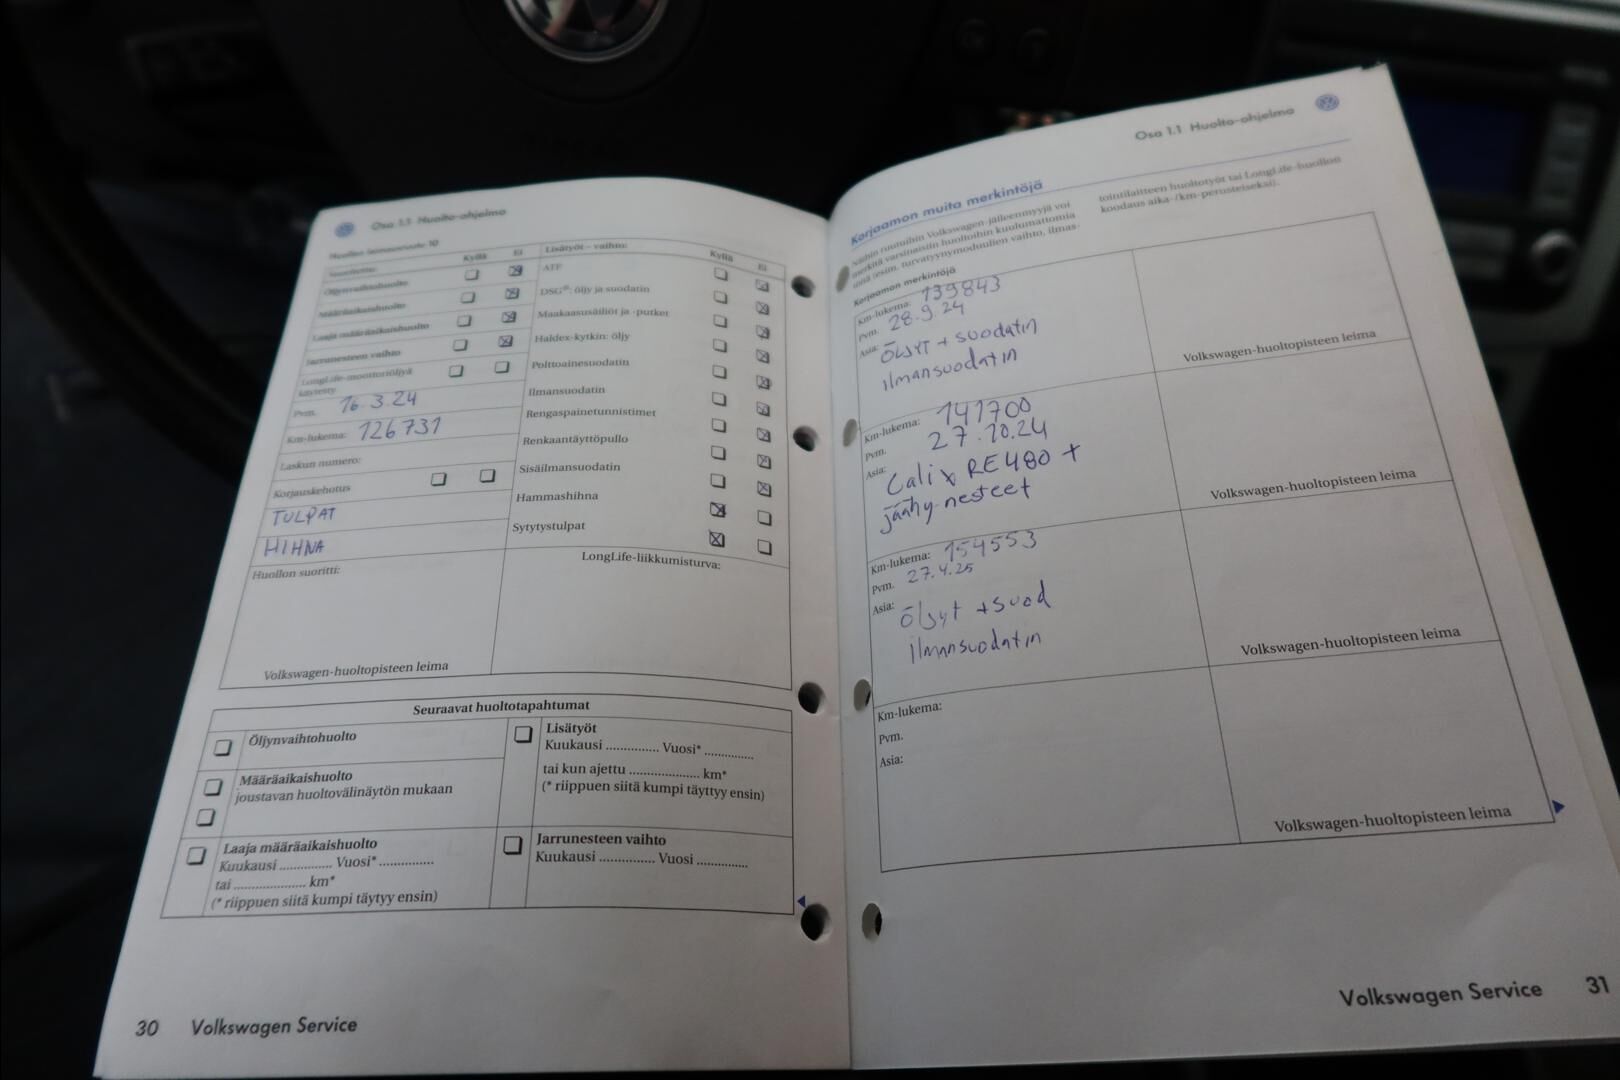 Osa 1.1 Huolto-ohjelma
Huollon leimausruutu 10
Kyllä Ei
Öljynvaihtohuolto
Määräaikaishuolto
Laaja määräaikaishuolto
Jarrunesteen vaihto
LongLife-moottoriöljyä
käytetty
Pvm. 16.3.24
Km-lukema: 126731
Laskun numero:
Korjauskehotus
TULPAT
HIHNA
Huollon suoritti:
Volkswagen-huoltopisteen leima
Lisätyöt – vaihto: Kyllä Ei
ATF
DSG®: öljy ja suodatin
Maakaasusäiliöt ja -putket
Haldex-kytkin: öljy
Polttoainesuodatin
Ilmansuodatin
Rengaspainetunnistimet
Renkaantäyttöpullo
Sisäilmansuodatin
Hammashihna
Sytytystulpat
LongLife-liikkumisturva:
Seuraavat huoltotapahtumat
Öljynvaihtohuolto
Määräaikaishuolto
joustavan huoltovälinäytön mukaan
Laaja määräaikaishuolto
Kuukausi ............. Vuosi* ..............
tai ..................... km*
(* riippuen siitä kumpi täytyy ensin)
Lisätyöt
Kuukausi ............... Vuosi* ..............
tai kun ajettu .................... km*
(* riippuen siitä kumpi täyttyy ensin)
Jarrunesteen vaihto
Kuukausi ............... Vuosi ..............
30 Volkswagen Service
Osa 1.1 Huolto-ohjelma
Korjaamon muita merkintöjä
Näihin ruutuihin Volkswagen-jälleenmyyjä voi
merkitä varsinaisiin huoltoihin kuulumattomia
töitä (esim. turvatyynymoduulien vaihto, ilmas-
tointilaitteen huoltotyöt tai LongLife-huollon
koodaus aika-/km-perusteiseksi).
Korjaamon merkintöjä
Km-lukema: 139843
Pvm. 28.9.24
Asia: Öljyt + suodatin
ilmansuodatin
Volkswagen-huoltopisteen leima
Km-lukema: 141700
Pvm. 27.10.24
Asia: Calix RE480 +
jäähy-nesteet
Volkswagen-huoltopisteen leima
Km-lukema: 154553
Pvm. 27.4.25
Asia: Öljyt + suod
ilmansuodatin
Volkswagen-huoltopisteen leima
Km-lukema:
Pvm.
Asia:
Volkswagen-huoltopisteen leima
Volkswagen Service 31